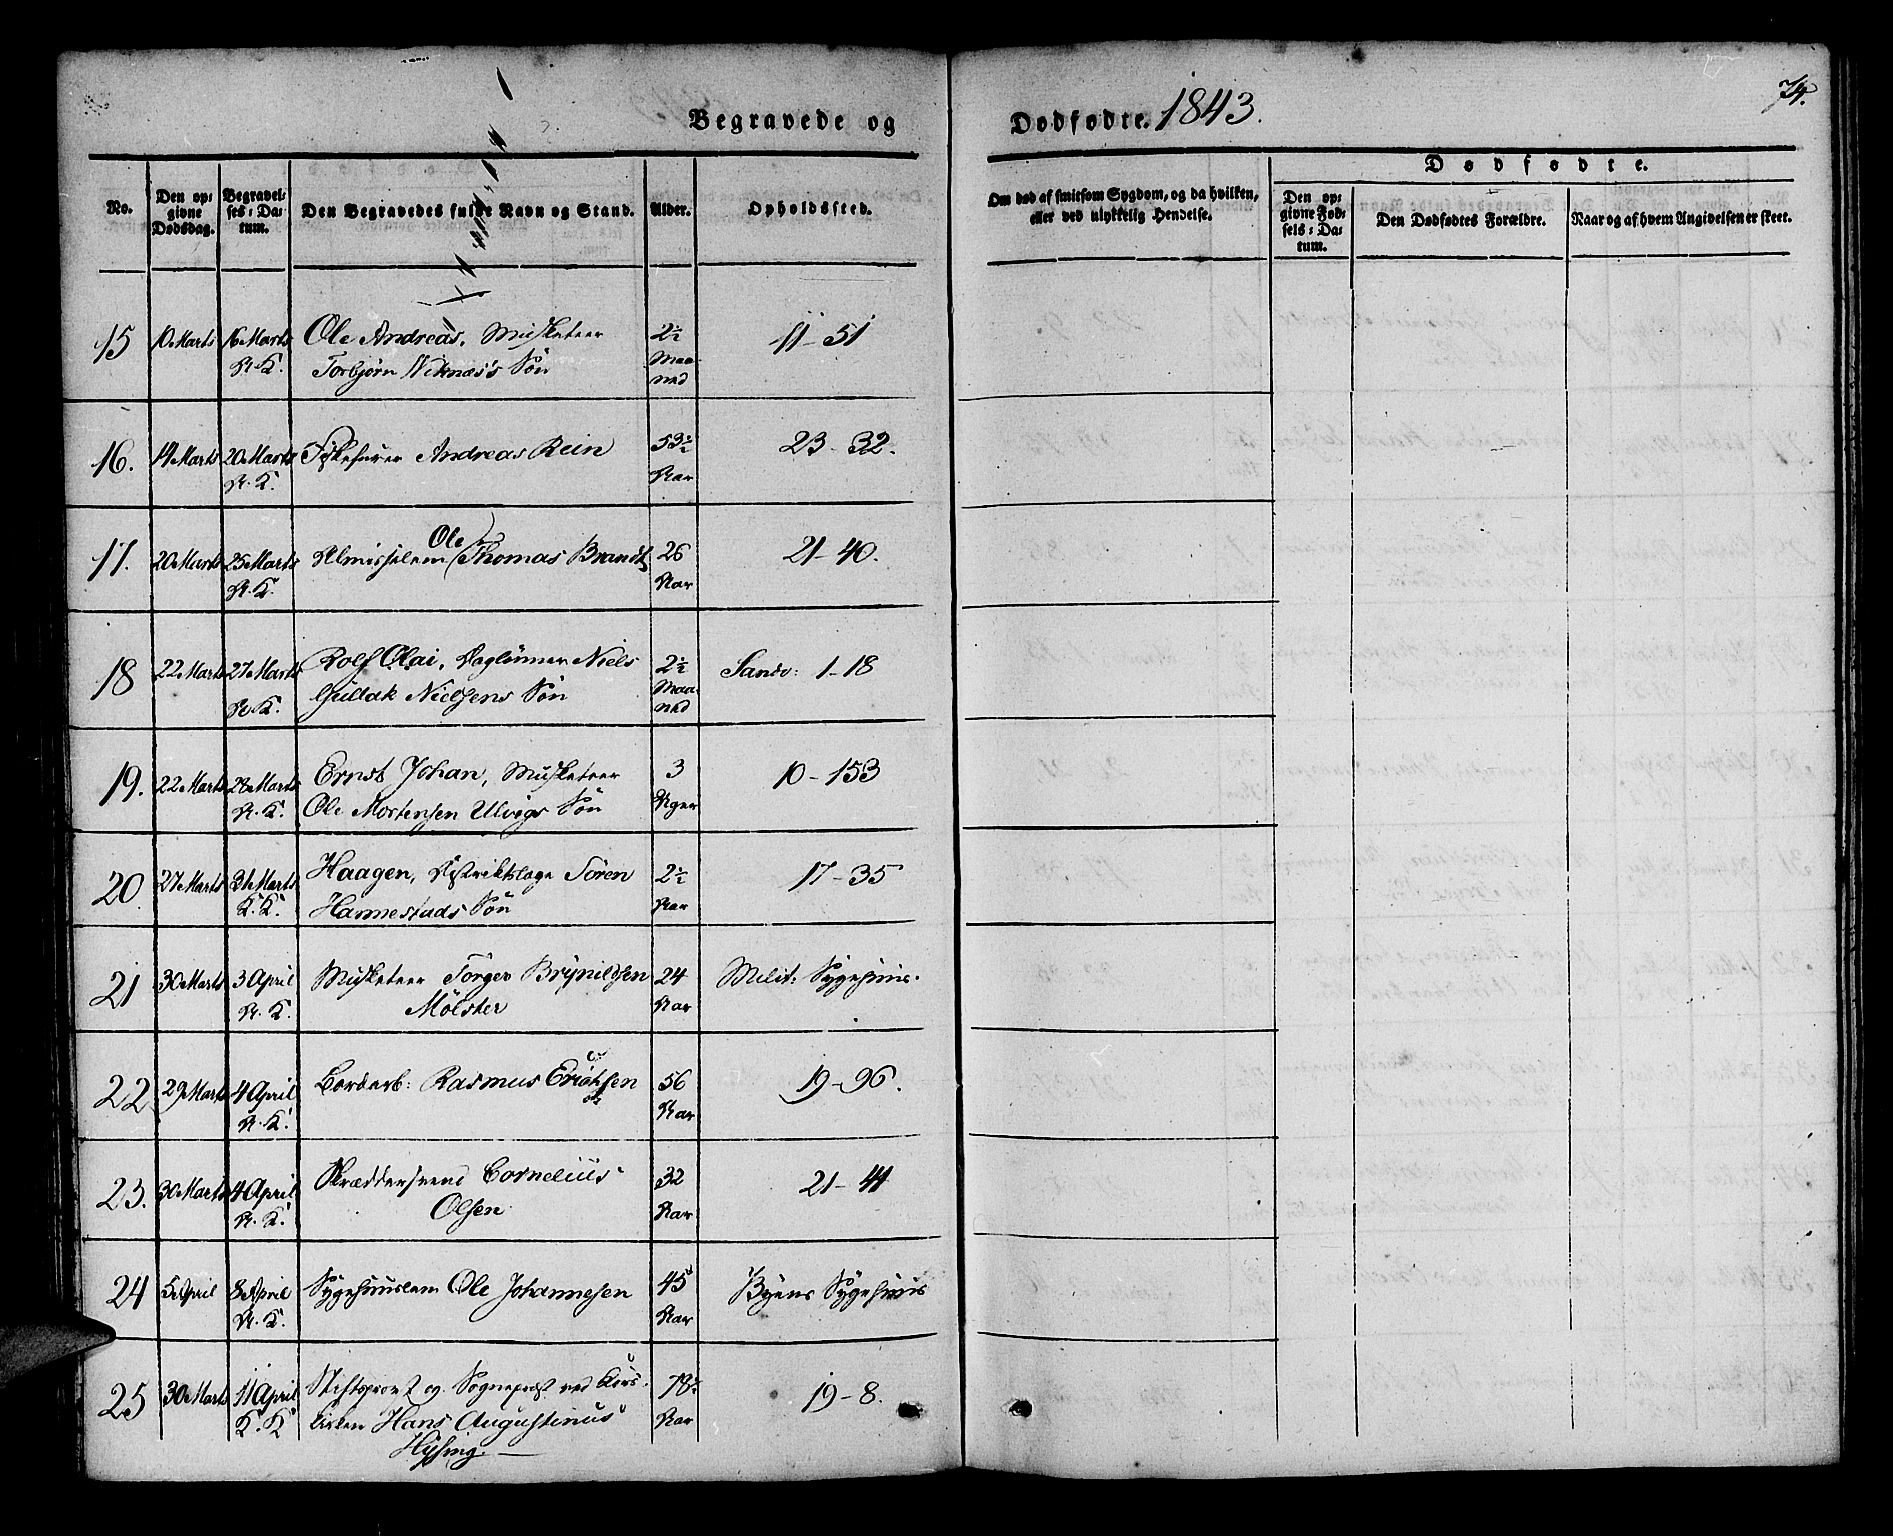 Begravede og Dødfødte. 1843.
74.
No.
Den opgivne Dødsdag.
Begravelses-Datum.
Den Begravedes fulde Navn og Stand.
Alder.
Opholdssted.
Om død af smitsom Sygdom, og da hvilken, eller ved ulykkelig Hendelse.
Dødfødte.
Den opgivne Fødsels-Datum.
Den Dødfødtes Forældre.
Naar og af hvem Angivelsen er skeet.
15 10 Marts 16 Marts Ole Andreas, Musketeer 2½ 11-51
A. K. Torbjørn Viknæs's Søn Maaned
16. 14 Marts 20 Marts Andreas Rein 53½ 23-32.
A. K. Aar
17. 20 Marts 25 Marts Almisselem Ole Thomas Brandt 26 21-40.
A. K. Aar
18 22 Marts 27 Marts Rolf Olai, Daglönner Niels 2½ Sandv: 1-18
A. K. Gullak Nielsens Søn Maaned
19. 22 Marts 28 Marts Ernst Johan, Musketeer 3 10-153
A. K. Ole Mortensen Ulvigs Søn Uger
20. 27 Marts 31 Marts Haagen, Distriktslæge Sören 2½ 17-35
K. K. Hannestads Søn Aar
21 30 Marts 3 April Musketeer Torger Brynildsen 24 Milit: Sygehuus.
A. K. Mölster Aar
22 29 Marts 4 April Bordarb: Rasmus Erichsen 56 19-96.
A. K. Aar
23. 30 Marts 4 April Skræddersvend Cornelius 32 21-41
A. K. Olsen Aar
24 5 April 8 April Sygehuuslem Ole Johannesen 45 Byens Sygehuus
A. K. Aar
25 30 Marts 11 April Stiftsprovst og Sognepræst ved Kors- 78½ 19-8.
K. K. kirken Hans Augustinus Aar
Hysing.